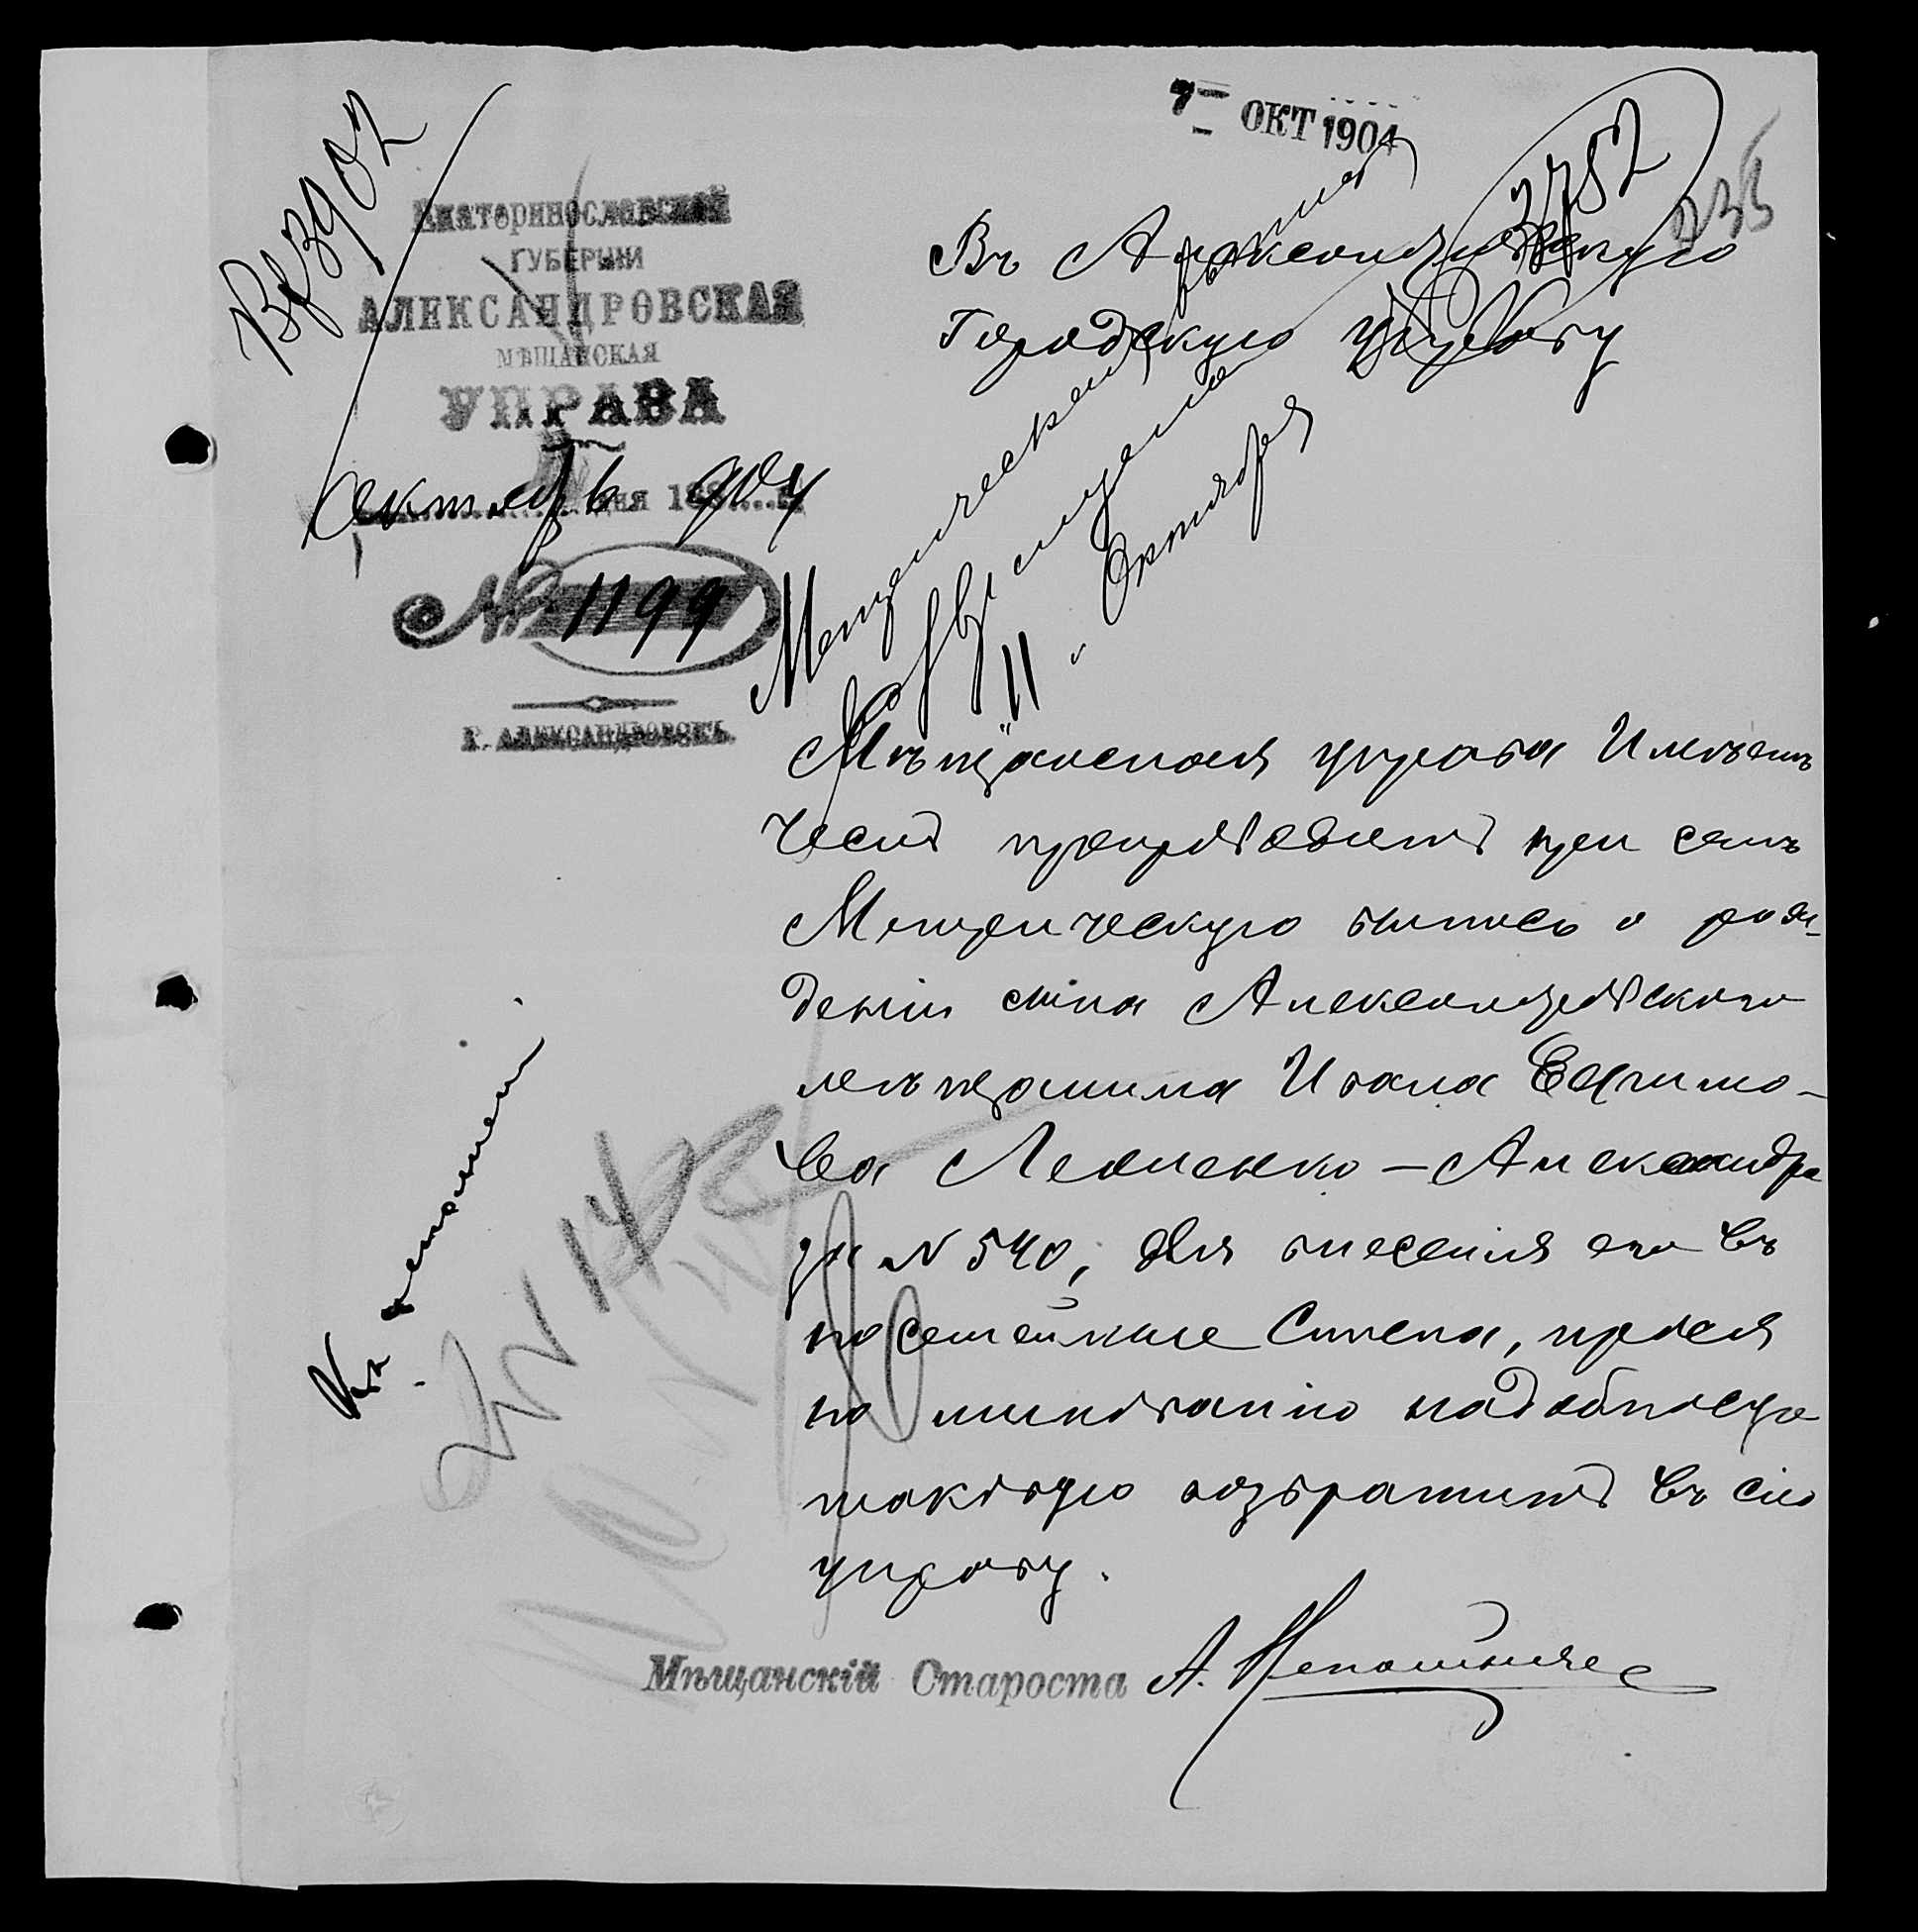 7 ОКТ 1904
3752
Екатеринославской
ГУБЕРНІИ
АЛЕКСАНДРОВСКАЯ
МѢЩАНСКАЯ
УПРАВА
Октября 904
дня 188
№ 1199
Г. АЛЕКСАНДРОВСКЪ.
Въ Александровскую
Городскую управу
Метрическая выпись
возвращена
"11" Октября
Мѣщанская управа Имѣетъ
честь препроводить при семъ
Метрическую выпись о рож-
деніи сына Александровского
мѣщанина Ивана Ефимо-
ва Леоненко - Александра
за N 540, для внесенія его въ
посемейные Списки, прося
по минованію надобности
таковую возвратить въ сію
управу.
Мѣщанскій Староста А.